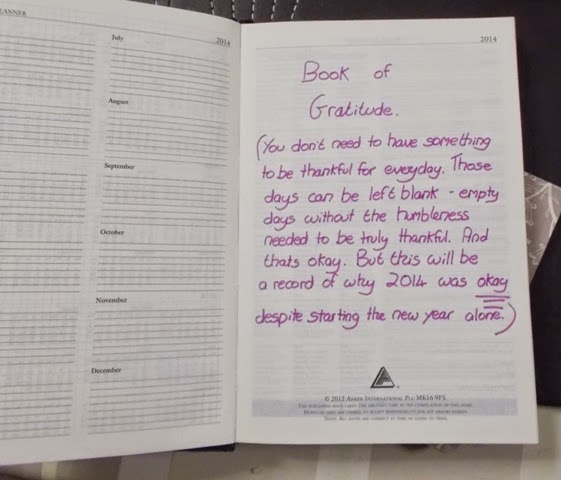 PLANNER
2014
July
August
September
October
November
December
2014
Book of
Gratitude.
(You don't need to have something
to be thankful for everyday. Those
days can be left blank - empty
days without the humbleness
needed to be truly thankful. And
thats okay. But this will be
a record of why 2014 was okay
despite starting the new year alone.)
© 2012 Anker International Plc MK16 9PX